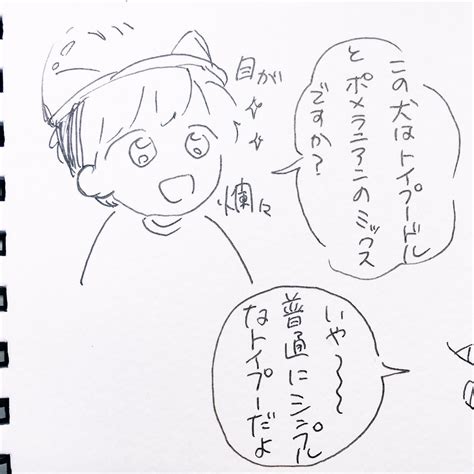 この犬はトイプードル
とポメラニアンのミックス
ですか?
目が
爛々
いや〜〜〜
普通にシンプル
なトイプーだよ